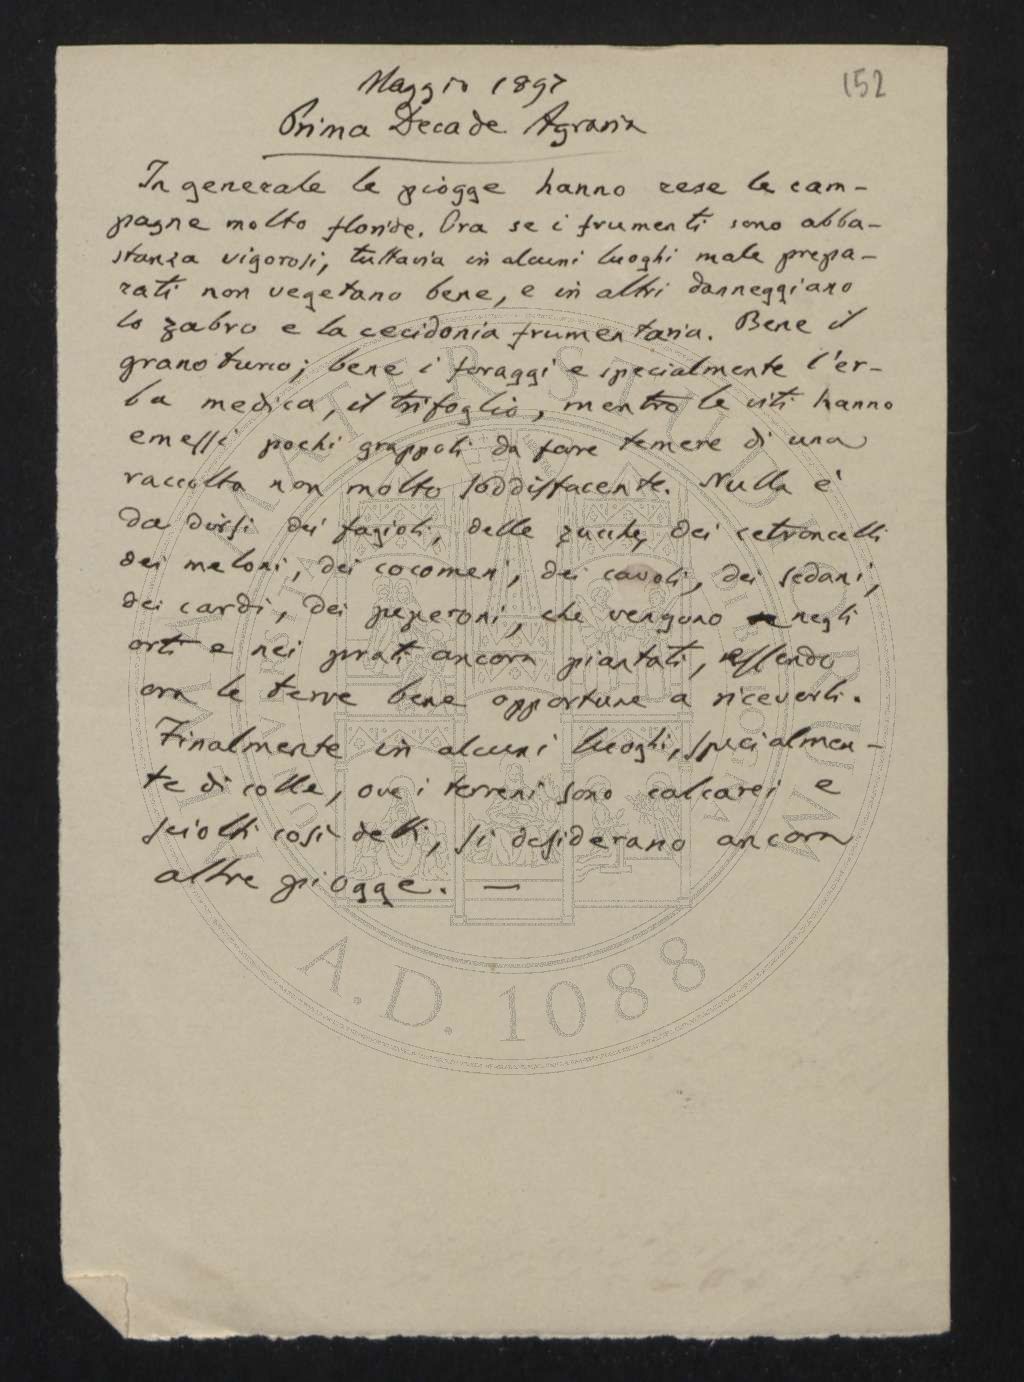 152
Maggio 1897
Prima Decade Agraria
In generale le piogge hanno rese le cam-
pagne molto floride. Ora se i frumenti sono abba-
stanza vigorosi, tuttavia in alcuni luoghi male prepa-
rati non vegetano bene, e in altri danneggiano
lo zabro e la cecidonia frumentaria. Bene il
granoturco; bene i foraggi e specialmente l'er-
ba medica, il trifoglio, mentre le viti hanno
emessi pochi grappoli da fare temere di una
raccolta non molto soddisfacente. Nulla è
da dirsi dei fagioli, delle zucche, dei cetroncelli
dei meloni, dei cocomeri, dei cavoli, dei sedani,
dei cardi, dei peperoni, che vengono negli
orti e nei prati ancora piantati, essendo
ora le terre bene opportune a riceverli.
Finalmente in alcuni luoghi, specialmen-
te di colle, ove i terreni sono calcarei e
sciolti così detti, si desiderano ancora
altre piogge. —
ALMA MATER STUDIORUM
A.D. 1088